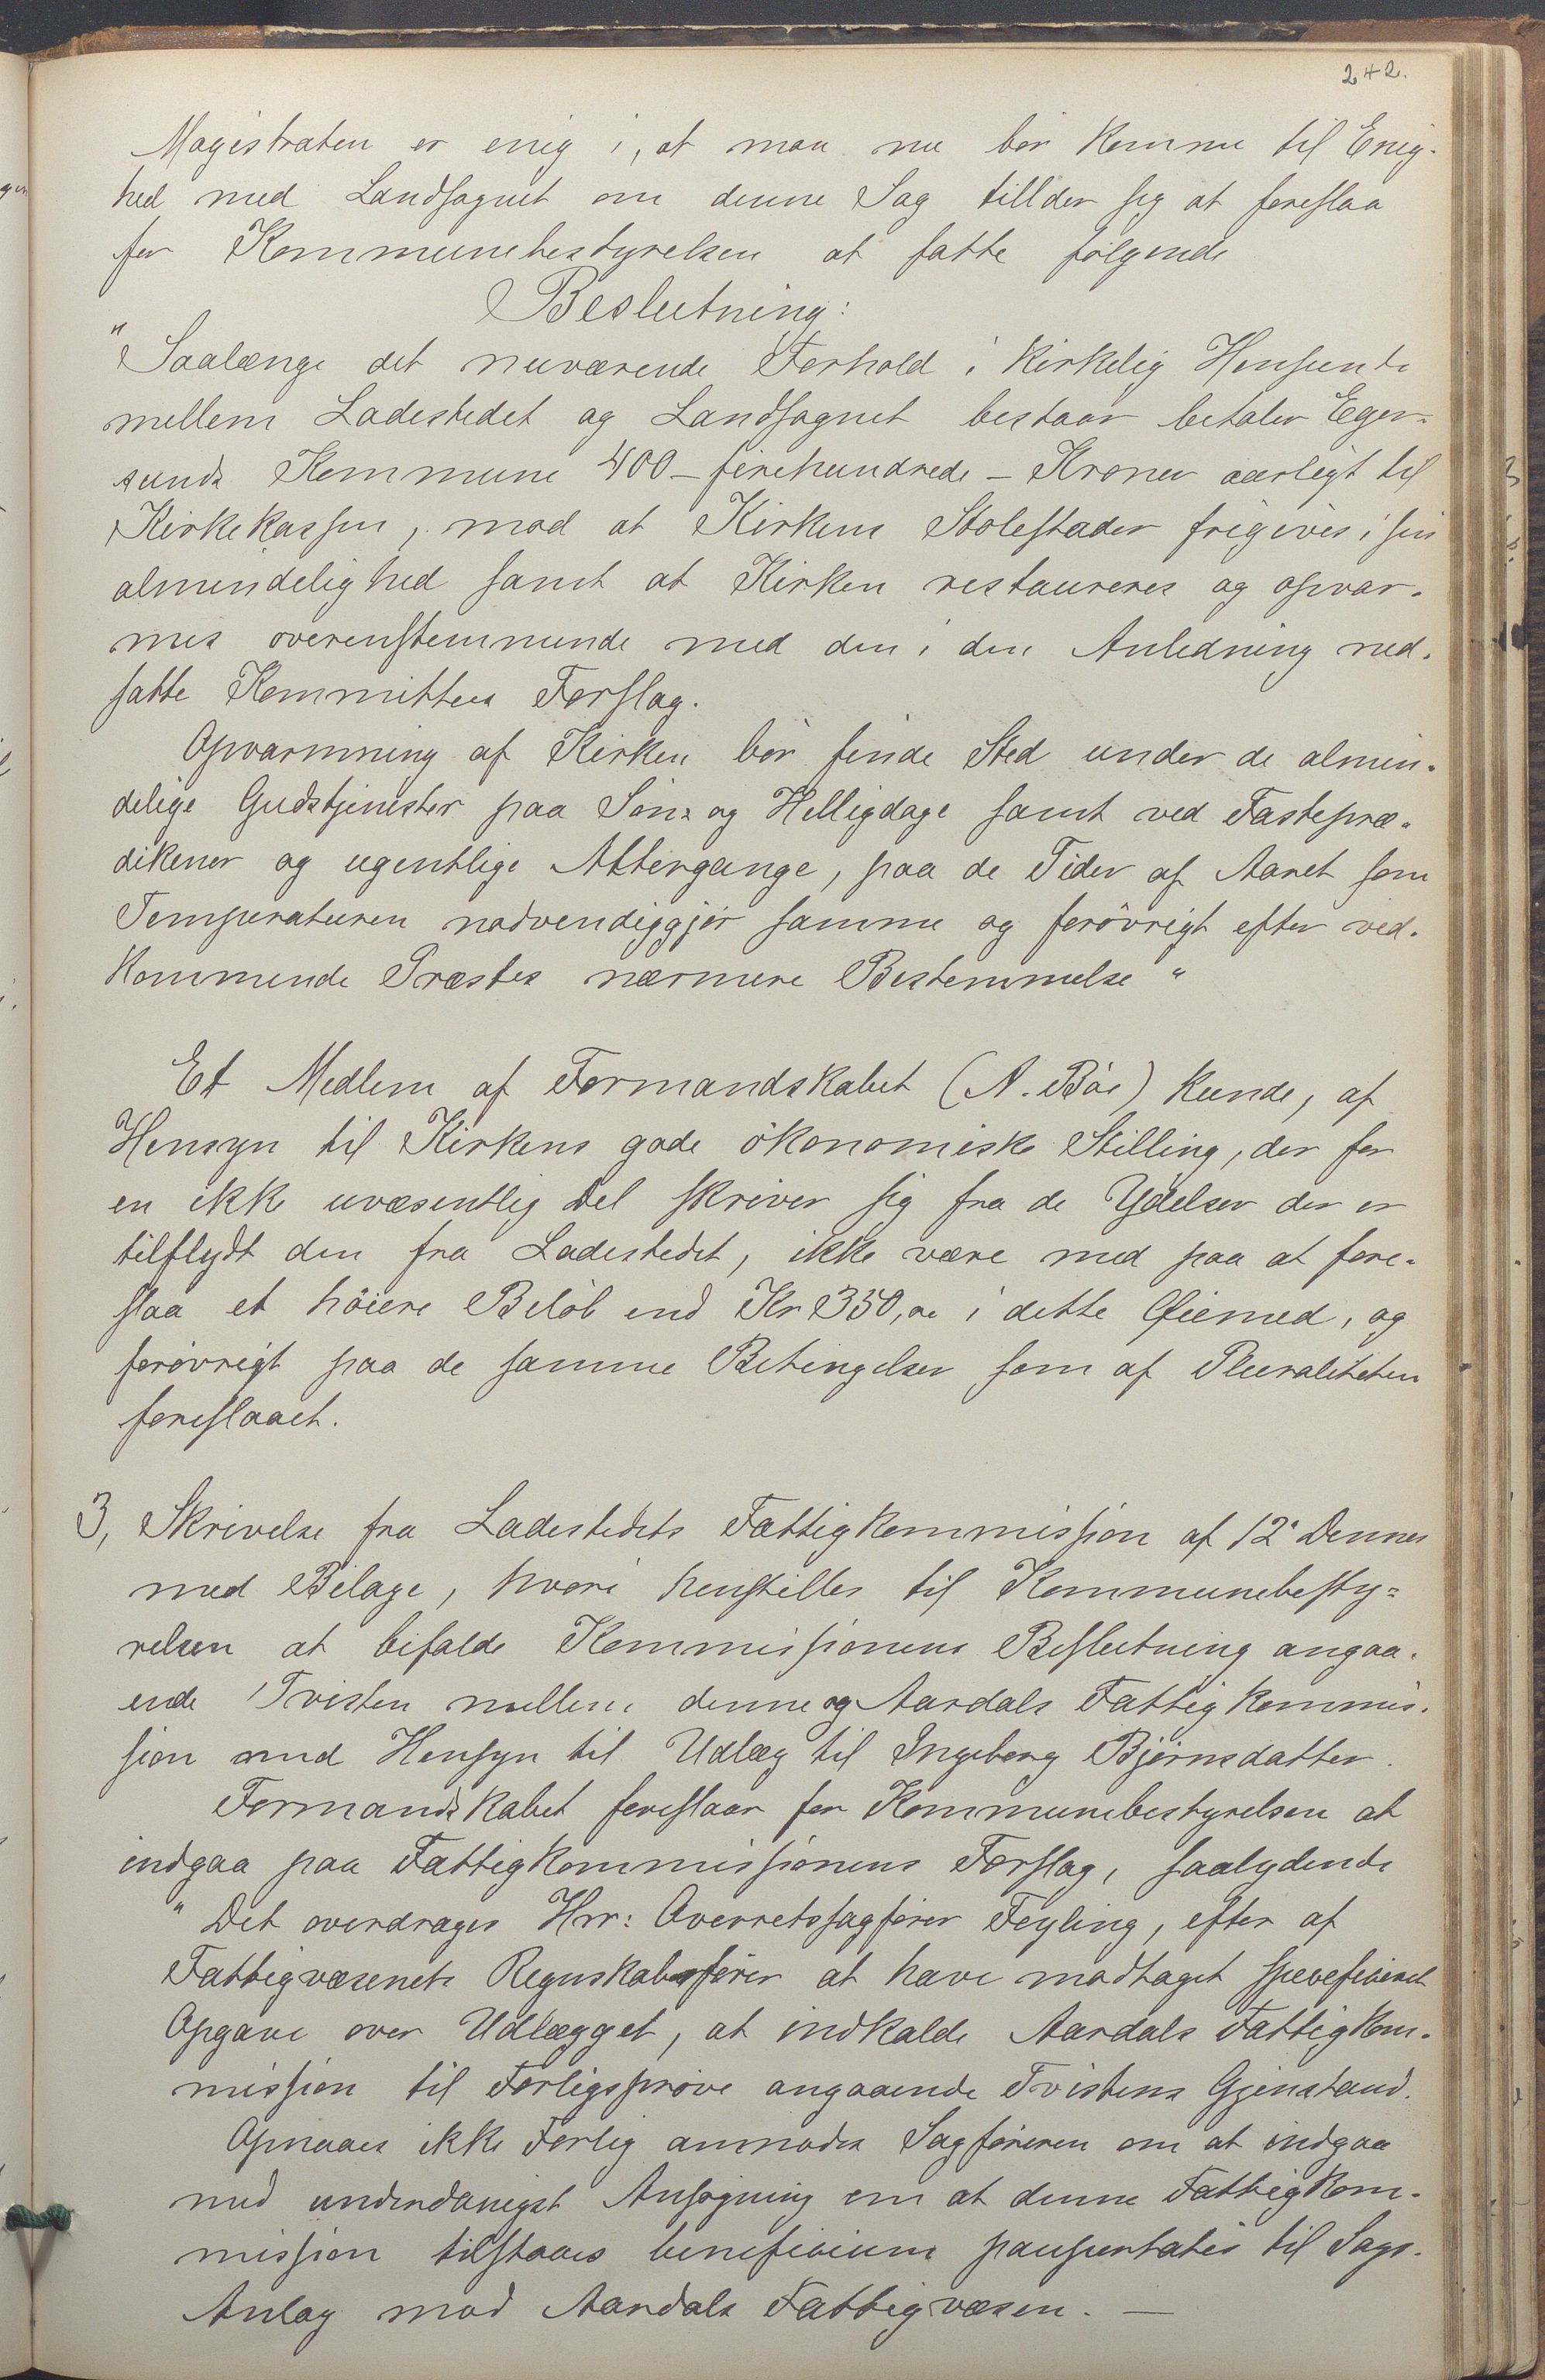 242.
Magistraten er enig i, at man nu bör komme til Enig-
hed med Landsognet om denne Sag tillder sig at foreslaa
for Kommunebestyrelsen at fatte følgende
Beslutning:
"Saalænge det nuværende Forhold i kirkelig Hensende
mellem Ladestedet og Landsognet bestaar betaler Eger-
sunds Kommune 400 - firehundrede - Kroner aarligt til
Kirkekassen, mod at Kirkens Stolestader frigives i sin
almindelighed samt at Kirken restaureres og opvar-
mes overensstemmende med den i den Anledning ned-
satte Kommittees Forslag.
Opvarmning af Kirken bör finde Sted under de almin-
delige Gudstjenester paa Søn- og Helligdage samt ved Fastepræ-
dikener og ugentlige Altergange, paa de Tider af Aaret som
Temperaturen nødvendiggjör samme og forövrigt efter ved-
kommende Præstes nærmere Bestemmelse"
Et Medlem af Formandskabet (A. Böe) kunde, af
Hensyn til Kirkens gode ökonomiske Stilling, der for
en ikke uvæsentlig Del skriver sig fra de Ydelser der er
tilflydt den fra Ladestedet, ikke være med paa at fore-
slaa et höiere Belöb end Kr 350,00 i dette Øiemed, og
forövrigt paa de samme Betingelser som af Pluraliteten
foreslaaet.
3, Skrivelse fra Ladestedets Fattigkommission af 12' Dennes
med Bilage, hvori henstilles til Kommunebesty-
relsen at bifalde Kommissionens Beslutning angaa-
ende Tvisten mellem denne og Aardals Fattigkommis-
sion med Hensyn til Udlæg til Ingeborg Bjørnsdatter.
Formandskabet foreslaar for Kommunebestyrelsen at
indgaa paa Fattigkommissionens Forslag, saalydende
"Det overdrages Hrr: Overretssagfører Feyling, efter af
Fattigvæsenets Regnskabsfører at have modtaget specificeret
Opgave over Udlægget, at indkalde Aardals Fattigkom-
mission til Forligsprøve angaaende Tvistens Gjenstand.
Opnaaes ikke Forlig anmodes Sagføreren om at indgaa
med underdanigst Ansøgning om at denne Fattigkom-
mission tilstaaes beneficium paupertatis til Sags-
Anlæg mod Aardals Fattigvæsen. —